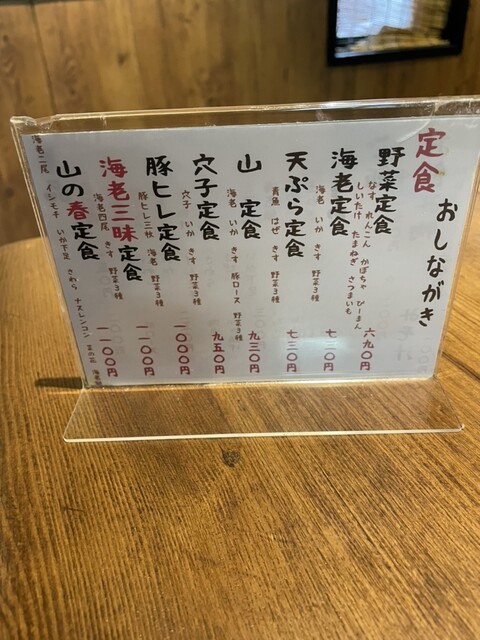 定食
おしながき
野菜定食
なす れんこん かぼちゃ ぴーまん
しいたけ たまねぎ さつまいも
六九〇円
海老定食
海老 いか きす 野菜3種
七三〇円
天ぷら定食
青魚 はぜ きす 野菜3種
七三〇円
山 定食
海老 いか きす 豚ロース 野菜3種
九三〇円
穴子定食
穴子 いか きす 野菜3種
九五〇円
豚ヒレ定食
豚ヒレ三秋 海老 野菜3種
一〇〇〇円
海老三昧定食
海老四尾 きす 野菜3種
一一〇〇円
山の春定食
海老二尾 イシモチ いか下足 さわら ナス レンコン 菜の花
一一〇〇円